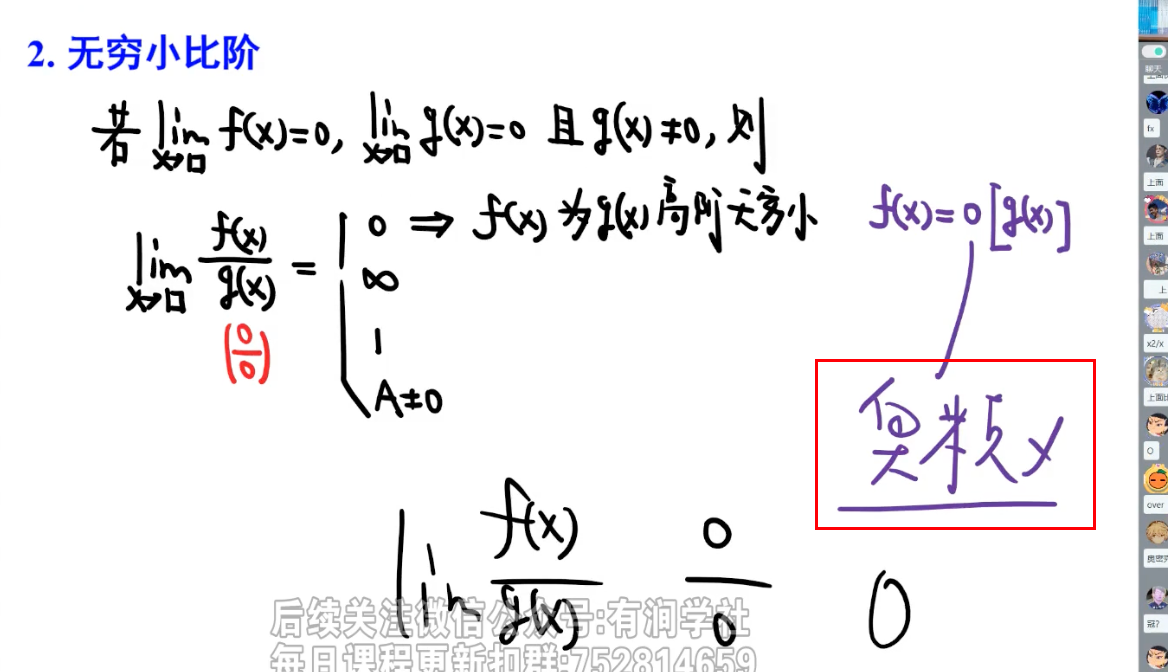 2. 无穷小比阶
若 lim x→□ f(x)=0, lim x→□ g(x)=0 且 g(x)≠0, 则
lim x→□ f(x)/g(x) = 0 ⇒ f(x) 为 g(x) 高阶无穷小 f(x)=0[g(x)]
(0/0)
∞
1
A≠0
lim f(x)/g(x) 0/0 0
后续关注微信公众号:有润学社
每日课程更新扣群:752814659
聊天
fx
上面
上面
上
x2/x
O
over
冠?